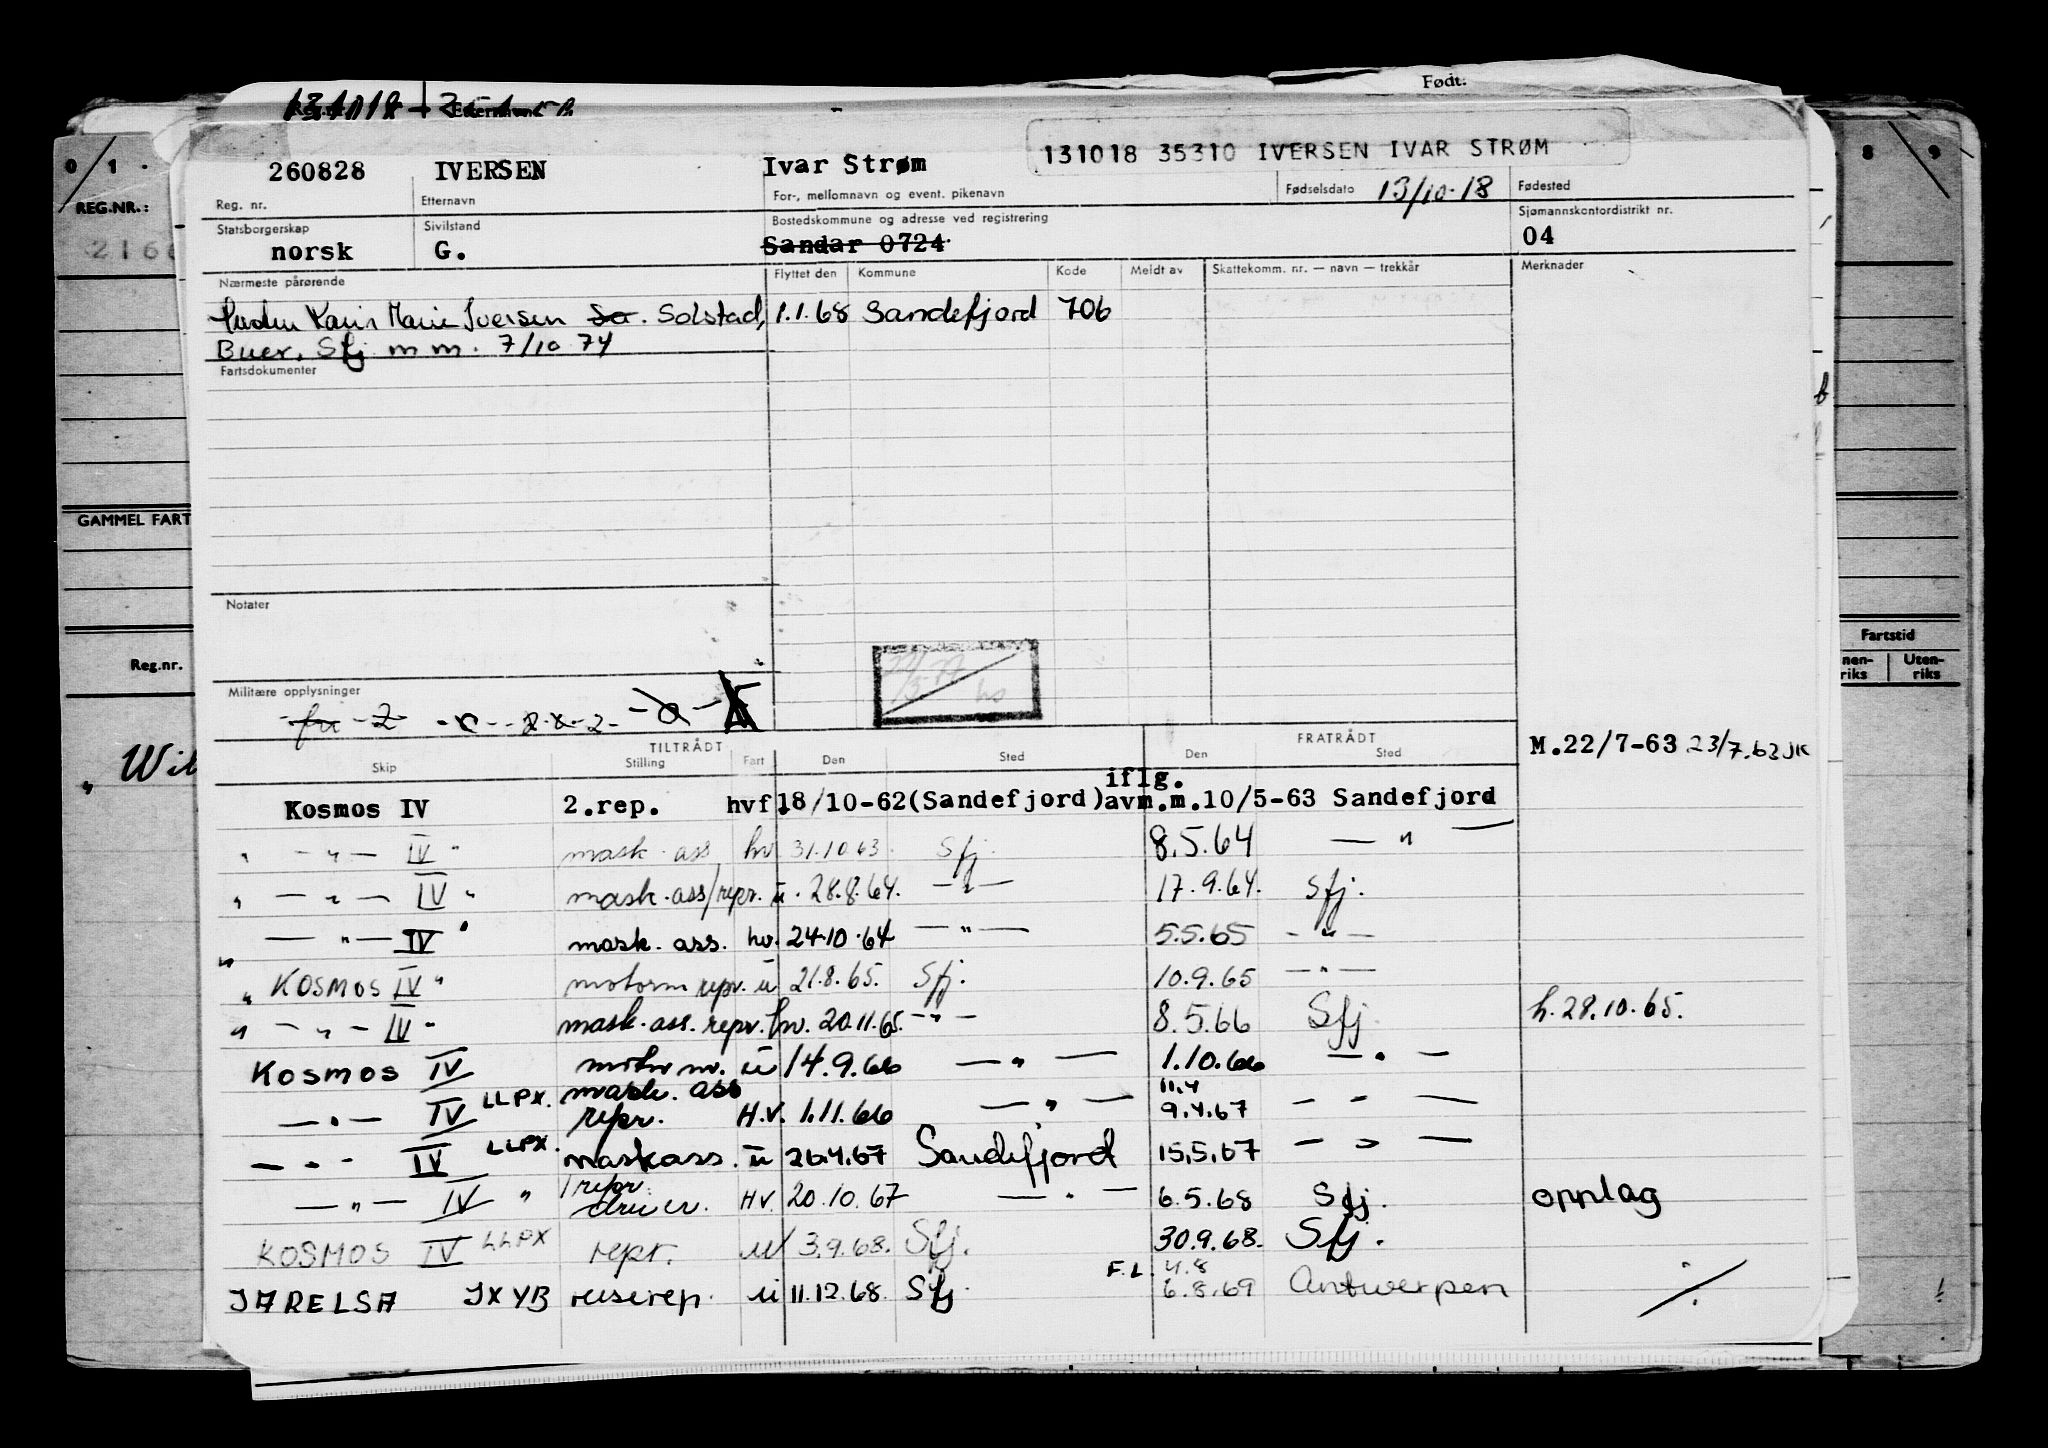 Født:
131018
131018 35310 IVERSEN IVAR STRØM
0 1 8 9
260828 IVERSEN Ivar Strøm 13/10-18
Reg. nr. Etternavn For-, mellomnavn og event. pikenavn Fødselsdato Fødested
REG.NR.:
Statsborgerskap Sivilstand Bostedskommune og adresse ved registrering Sjømannskontordistrikt nr.
norsk G. Sandar 0724 04
Nærmeste pårørende Flyttet den Kommune Kode Meldt av Skattekomm. nr. — navn — trekkår Merknader
Karin Marie Iversen Solstad, 1.1.68 Sandefjord 706
Buer, Sfj m m. 7/10 74
Fartsdokumenter
GAMMEL FART
Notater
Fartstid
Reg.nr. Uten-
riks riks
Militære opplysninger
TILTRÅDT FRATRÅDT
Skip Stilling Fart Den Sted Den Sted M.22/7-63 23/7.63 JK
iflg.
Kosmos IV 2.rep. hvf. 18/10-62 (Sandefjord) avm.m. 10/5-63 Sandefjord
" — " — IV " mask. ass hv 31.10.63. Sfj. 8.5.64 — " —
" — " — IV " mask. ass/repr. u. 28.8.64. — " — 17.9.64. Sfj.
" — " — IV " mask. ass. hv. 24.10.64 — " — 5.5.65 - " -
" KOSMOS IV " motorm repr. u 21.8.65. Sfj. 10.9.65 — " —
" — " — IV " mask. ass. repr. hv. 20.11.65. — " — 8.5.66 Sfj. h. 28.10.65.
KOSMOS IV u 14.9.66 — " — 1.10.66 — " —
mask. ass 11.4
— " — IV LLPX. repr. H.V. 1.11.66 — " — 9.4.67 — " —
— " — IV LLPX. maskass. u 26.4.67 Sandefjord 15.5.67 — " —
repr.
— " — IV " H.V. 20.10.67 — " — 6.5.68 Sfj. opplag
KOSMOS IV LLPX repr. u 3.9.68. Sfj. 30.9.68. Sfj.
F.L. 4.8
JARELSA JXYB reiserep. u 11.12.68. Sfj. 6.8.69 Antwerpen